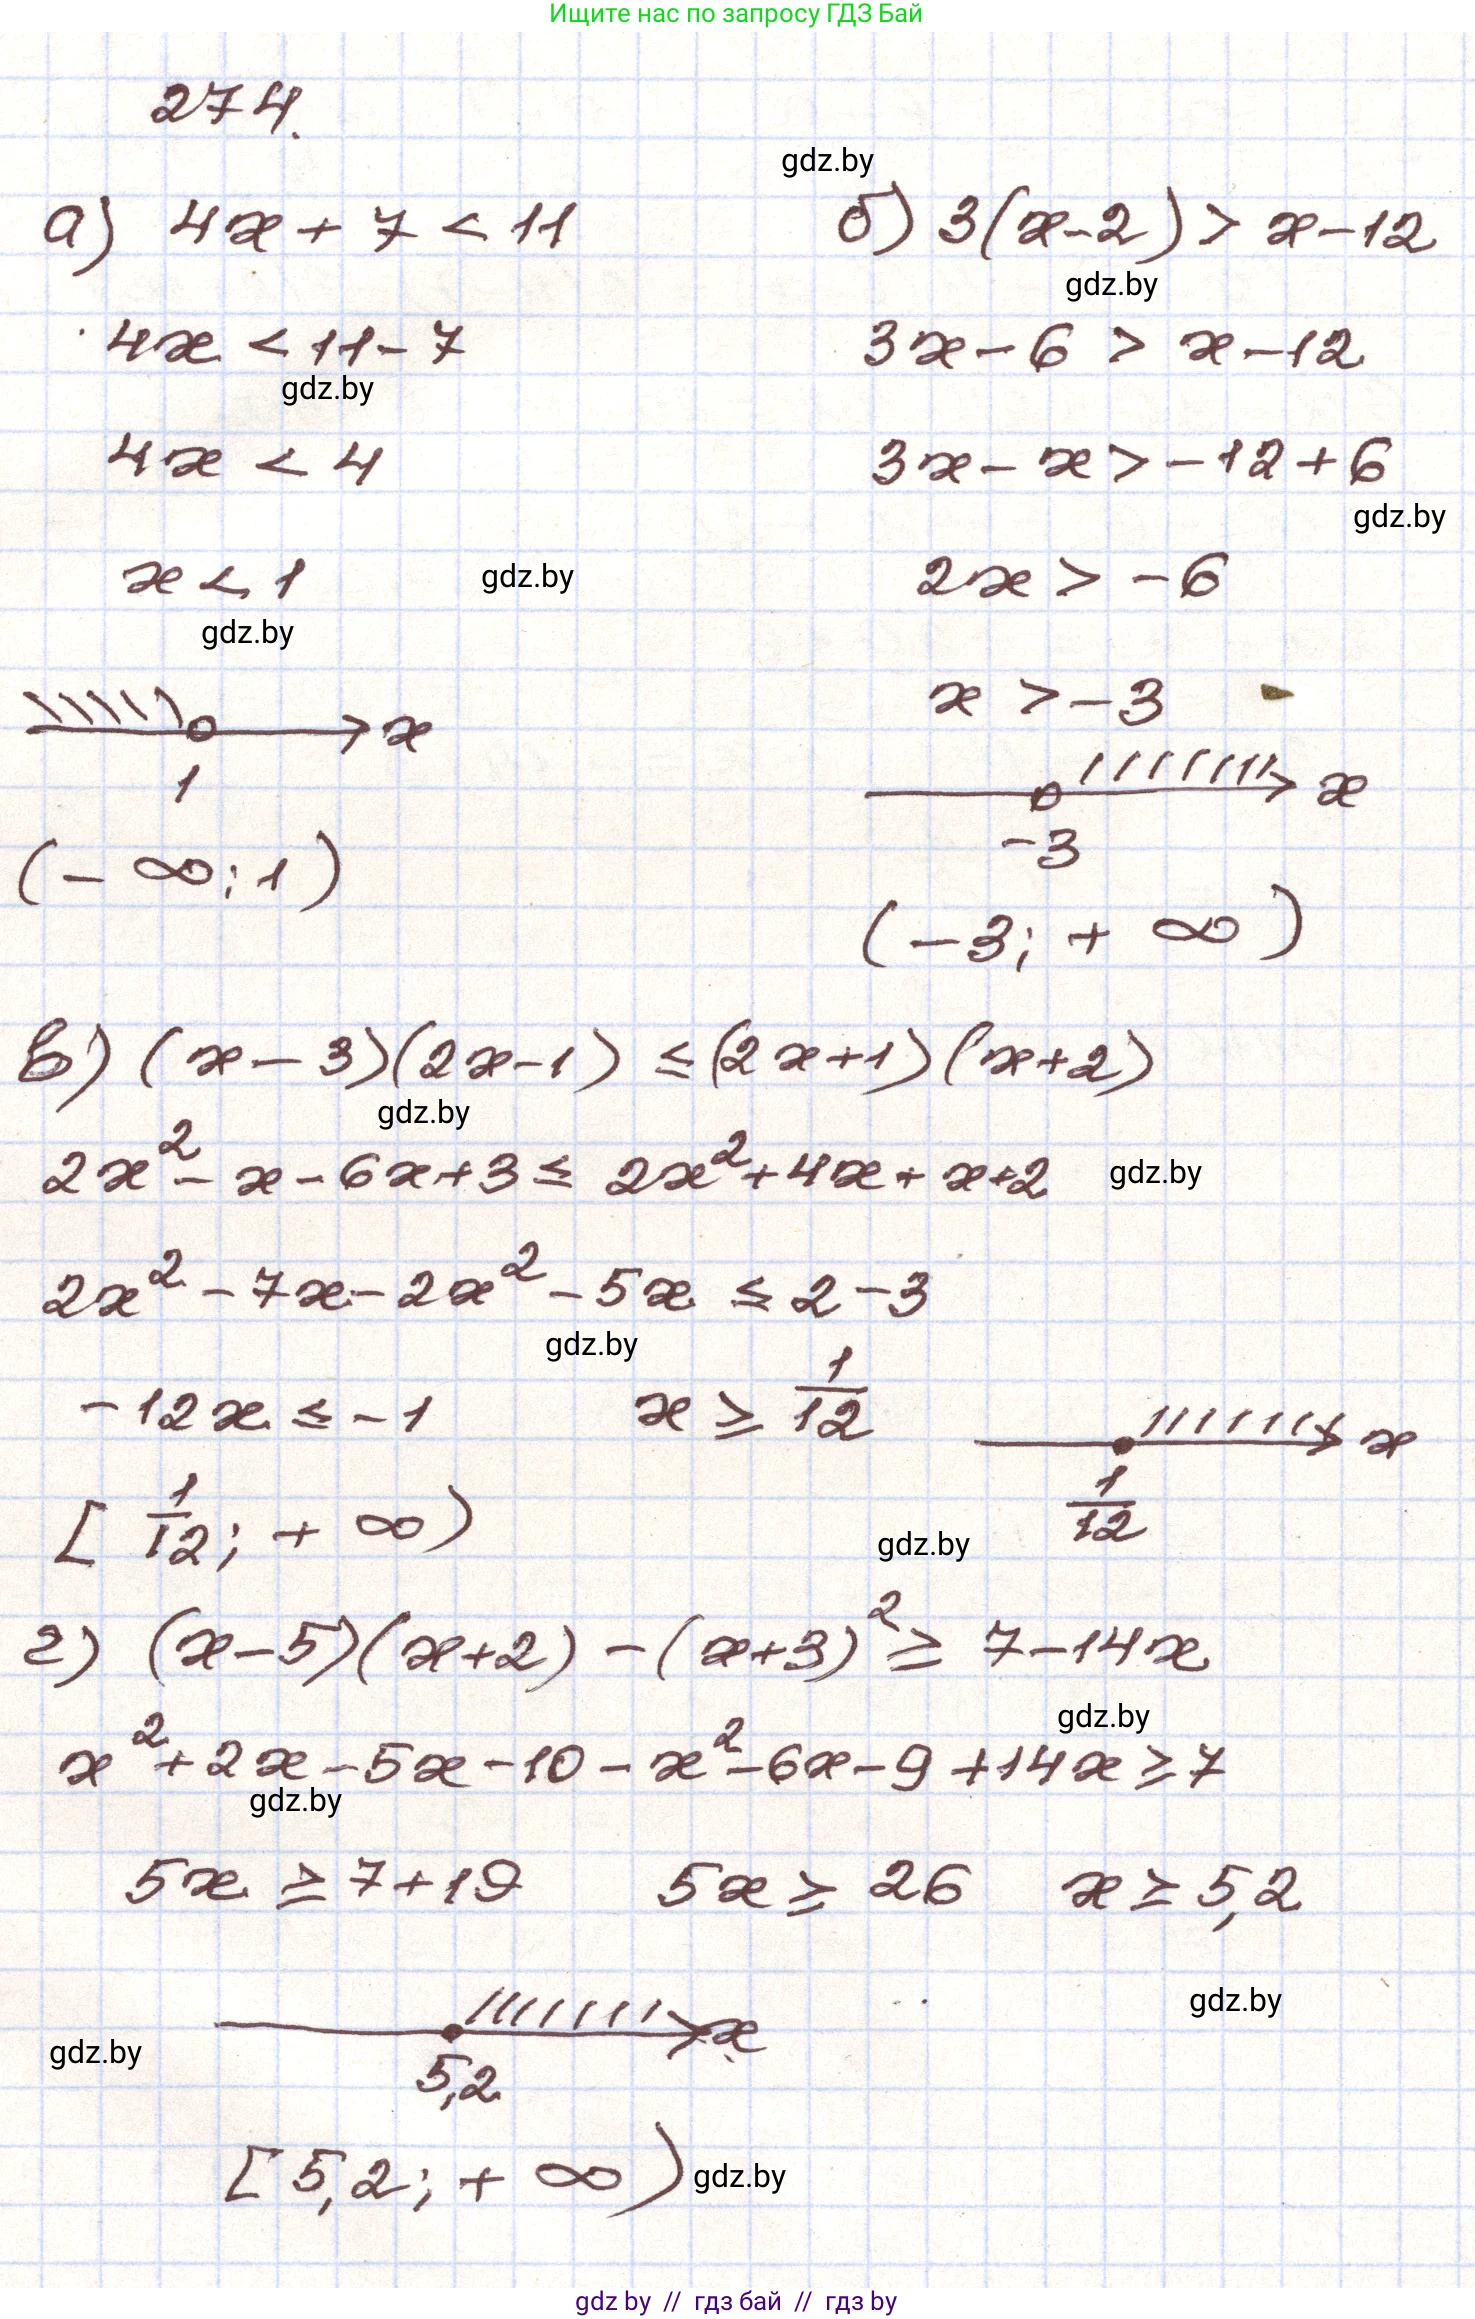 Ищите нас по запросу ГДЗ Бай
274.
gdz.by
а) 4x + 7 < 11
б) 3(x-2) > x-12
gdz.by
4x < 11-7
3x-6 > x-12
gdz.by
4x < 4
3x-x > -12+6
gdz.by
x < 1
gdz.by
2x > -6
gdz.by
x > -3
x
1
x
-3
(-∞; 1)
(-3; +∞)
в) (x-3)(2x-1) ≤ (2x+1)(x+2)
gdz.by
2x²-x-6x+3 ≤ 2x²+4x+x+2
gdz.by
2x²-7x-2x²-5x ≤ 2-3
gdz.by
-12x ≤ -1
x ≥ 1/12
x
1/12
[1/12; +∞)
gdz.by
г) (x-5)(x+2)-(x+3)² ≥ 7-14x
gdz.by
x²+2x-5x-10-x²-6x-9+14x ≥ 7
gdz.by
5x ≥ 7+19
5x ≥ 26
x ≥ 5,2
gdz.by
x
gdz.by
5,2
[5,2; +∞)
gdz.by
gdz by // гдз бай // гдз by